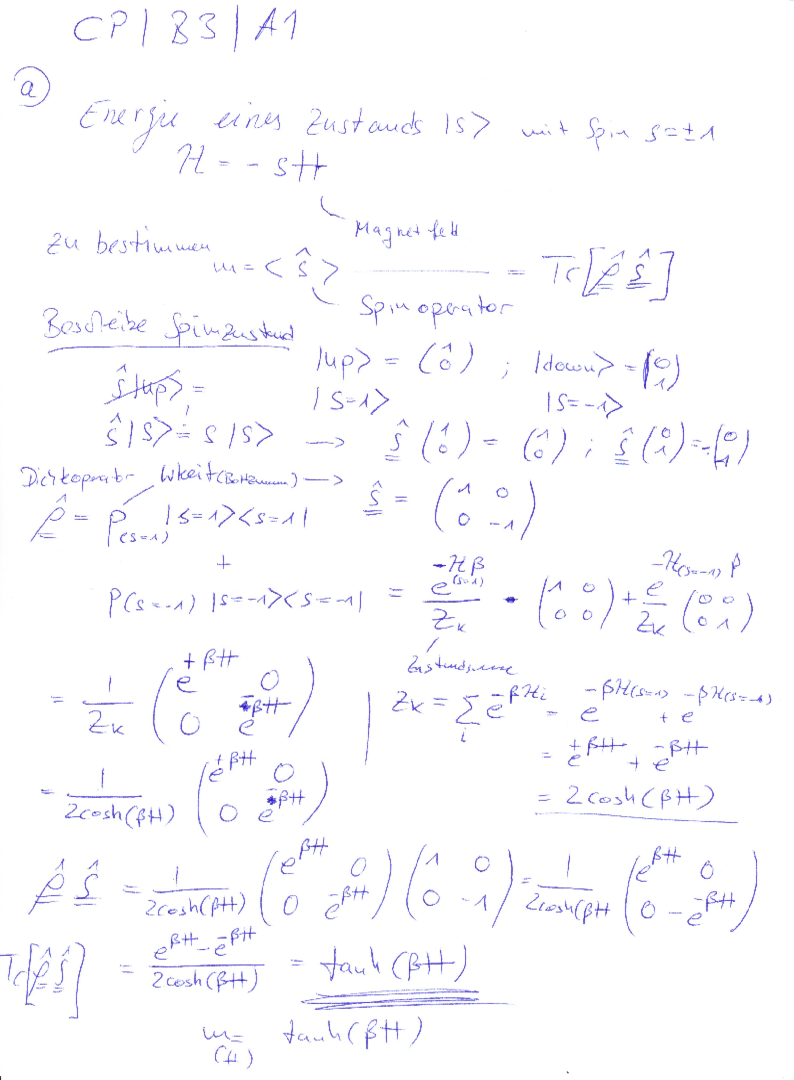 CP | B3 | A1
(a)
Energie eines Zustands |s> mit Spin s=±1
ℋ = - sH
Magnetfeld
zu bestimmen m = < ŝ > = Tr[ρ̂ ŝ]
Spinoperator
Beschreibe Spinzustand
|up> = (1 0) ; |down> = (0 1)
ŝ|up> = |s=1> |s=-1>
ŝ|s> = s|s> → ŝ (1 0) = (1 0) ; ŝ (0 1) = -(0 1)
Dichteoperator Wkeit (Boltzmann) → ŝ = (1 0 0 -1)
ρ̂ = P(s=1) |s=1><s=1|
+
P(s=-1) |s=-1><s=-1| = e^(-ℋ(s=1) β)/Z_K · (1 0 0 0) + e^(-ℋ(s=-1) β)/Z_K (0 0 0 1)
Zustandssumme
= 1/Z_K (e^(+βH) 0 0 e^(-βH)) | Z_K = Σ_i e^(-βℋ_i) = e^(-βℋ(s=1)) + e^(-βℋ(s=-1))
= e^(+βH) + e^(-βH)
= 1/(2cosh(βH)) (e^(+βH) 0 0 e^(-βH))
= 2cosh(βH)
ρ̂ ŝ = 1/(2cosh(βH)) (e^(βH) 0 0 e^(-βH)) (1 0 0 -1) = 1/(2cosh(βH) (e^(βH) 0 0 -e^(-βH))
Tr[ρ̂ŝ] = (e^(βH) - e^(-βH))/(2cosh(βH)) = tanh(βH)
m(H) = tanh(βH)